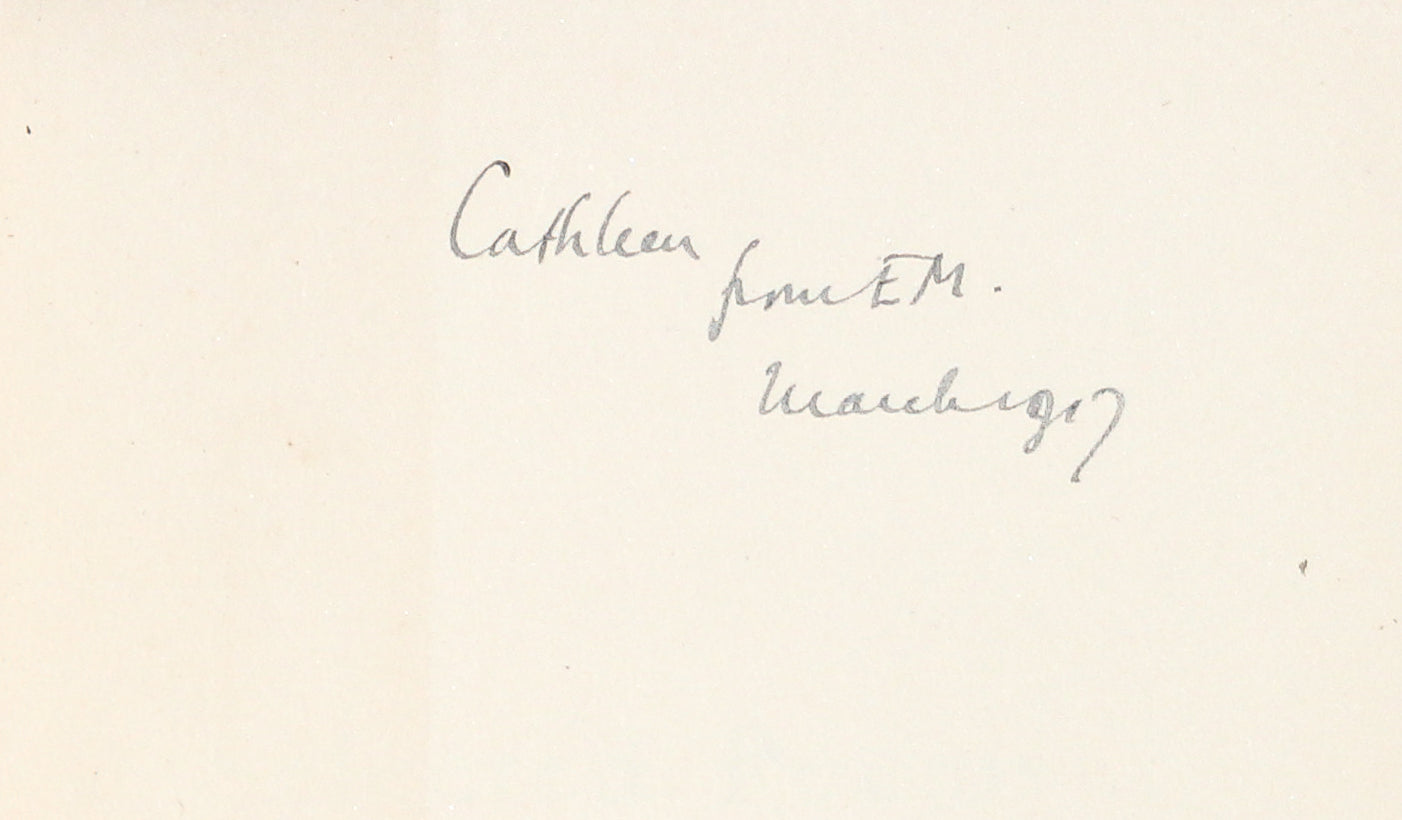 Cathleen
from EM.
March 1907